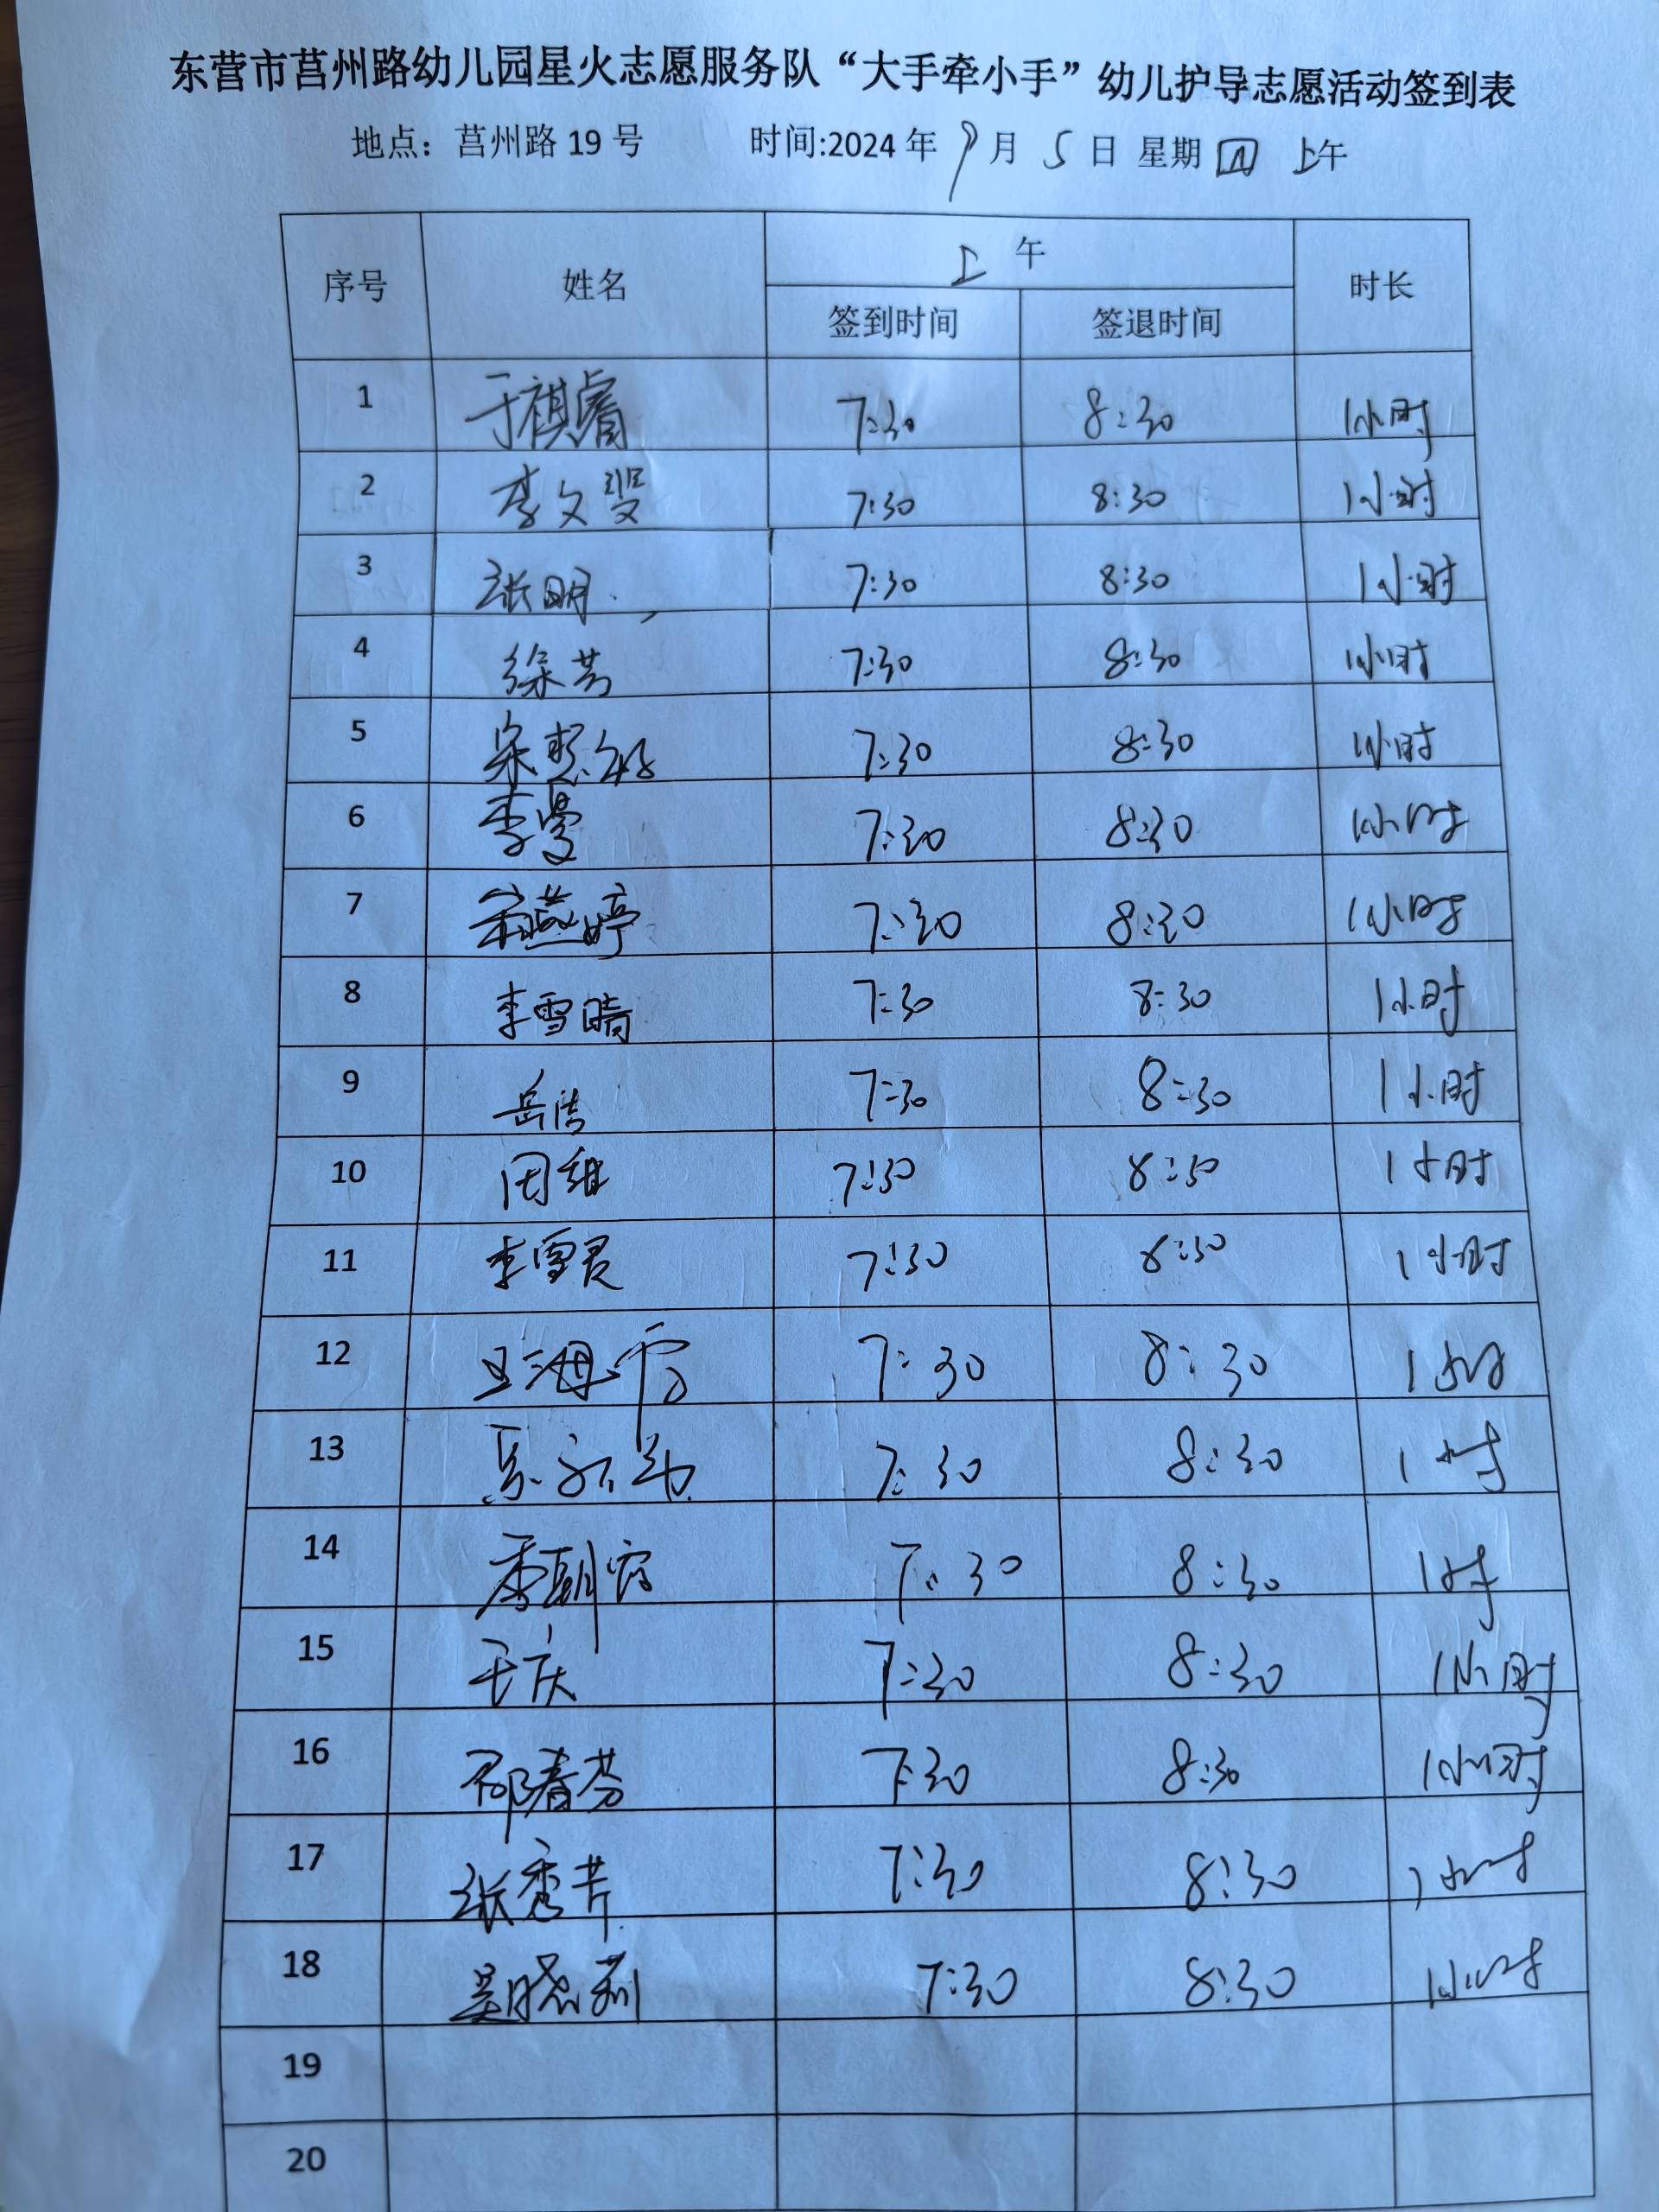 东营市莒州路幼儿园星火志愿服务队“大手牵小手”幼儿护导志愿活动签到表
地点：莒州路 19 号 时间:2024 年 9 月 5 日 星期 四 上午
序号 姓名 上 午 时长
签到时间 签退时间
1 于祺睿 7:30 8:30 1小时
2 李文 7:30 8:30 1小时
3 张明 7:30 8:30 1小时
4 徐芳 7:30 8:30 1小时
5 宋 7:30 8:30 1小时
6 李曼 7:30 8:30 1小时
7 宋燕婷 7:30 8:30 1小时
8 李雪晴 7:30 8:30 1小时
9 岳洁 7:30 8:30 1小时
10 周 7:30 8:30 1小时
11 李雪君 7:30 8:30 1小时
12 王海 7:30 8:30 1小时
13 7:30 8:30 1小时
14 7:30 8:30 1小时
15 于庆 7:30 8:30 1小时
16 邵春芬 7:30 8:30 1小时
17 张秀芹 7:30 8:30 1小时
18 吴晓莉 7:30 8:30 1小时
19
20